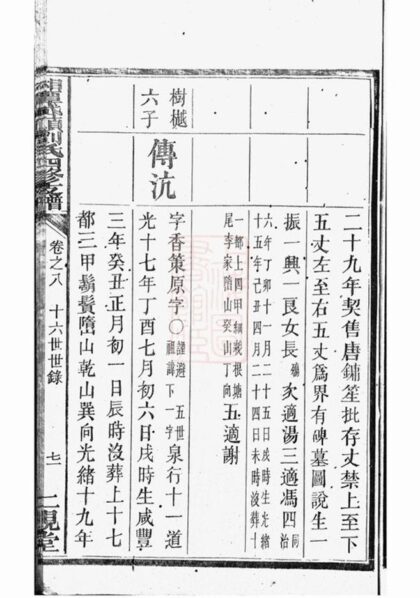 二十九年契售唐鏞笙批存丈禁上至下
五丈左至右五丈爲界有碑墓圖說生一
振一興一艮女長殤次適湯三適馮四同治
六年丁卯十一月二十五日戌時生光緒
十五年己丑四月二十四日未時沒葬十
一都上四甲細根塘
尾李家隋山癸山丁向五適謝
樹樾
六子
傳沆
字香原字〇謹避五世祖諱下一字泉行十一道
光十七年丁酉七月初六日戌時生咸豐
三年癸丑正月初一日辰時沒葬上十七
都三甲鬍鬢隋山乾山巽向光緒十九年
劉氏四修支譜
卷之八
十六世世錄
七一